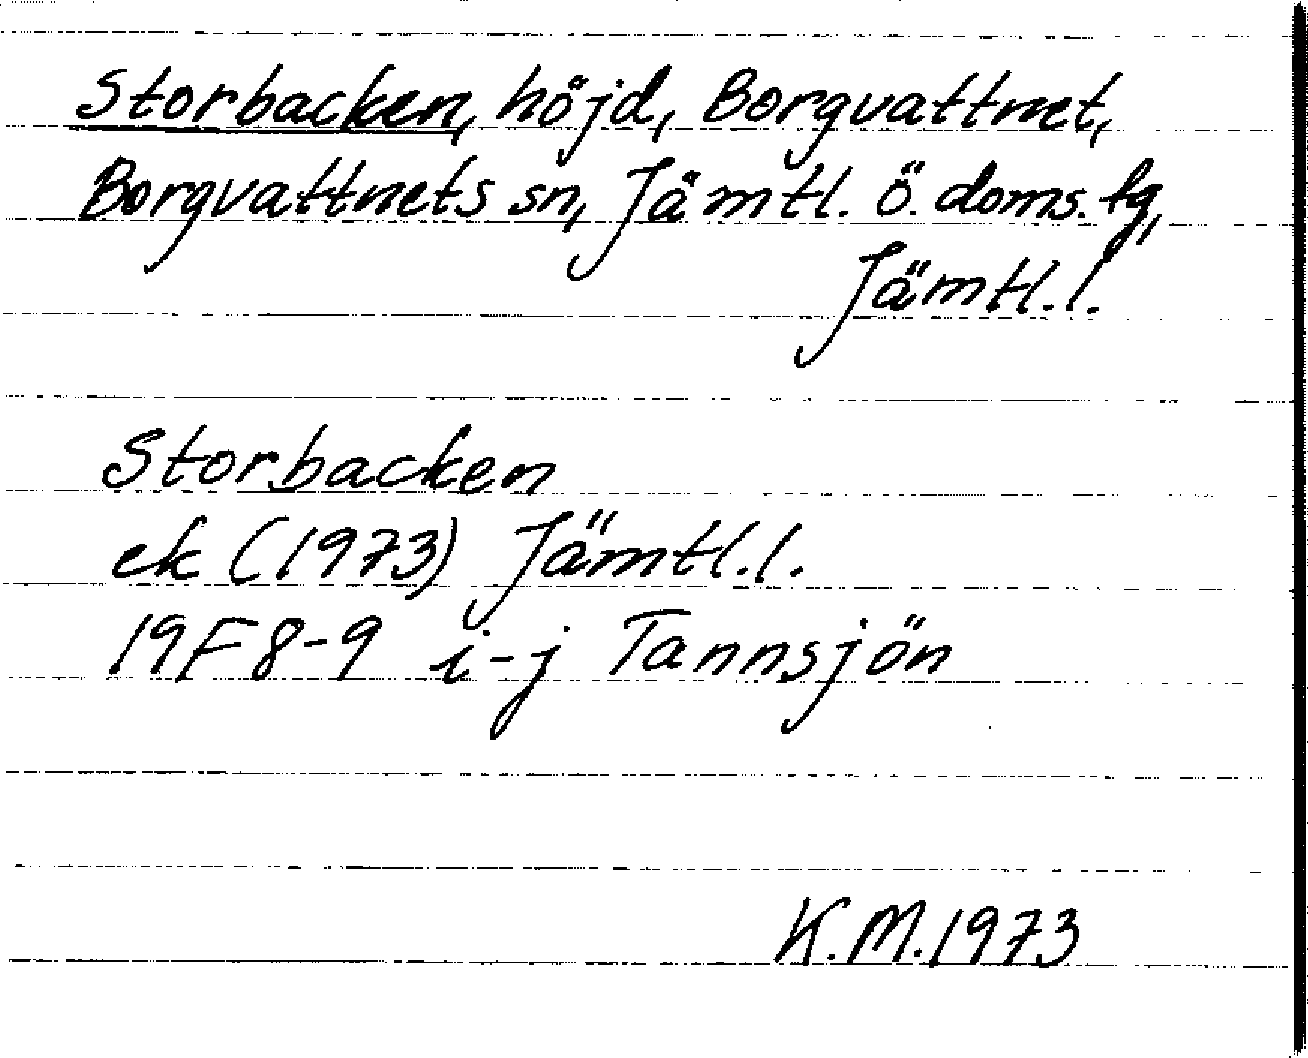 Storbacken, höjd, Borgvattnet,
Borgvattnets sn, Jämtl. ö. doms. fg,
Jämtl. l.
Storbacken
ek (1973) Jämtl. l.
19F 8-9 i-j Tannsjön
K.M. 1973